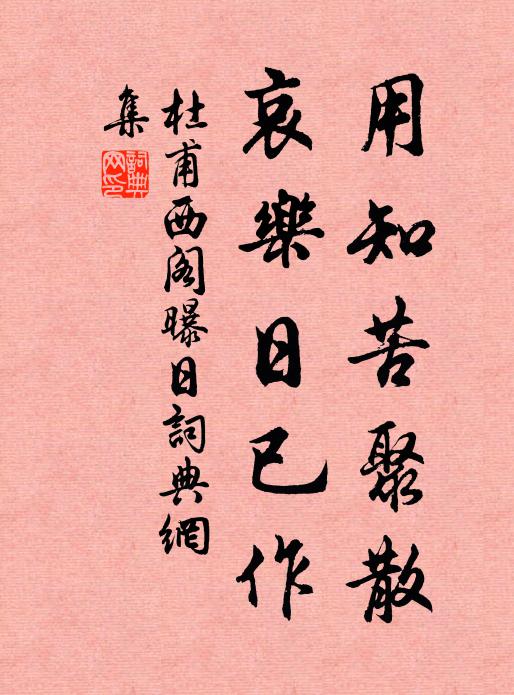 用知苦聚散
哀樂日已作
杜甫西閣曝日詞典網
集
詞典网印